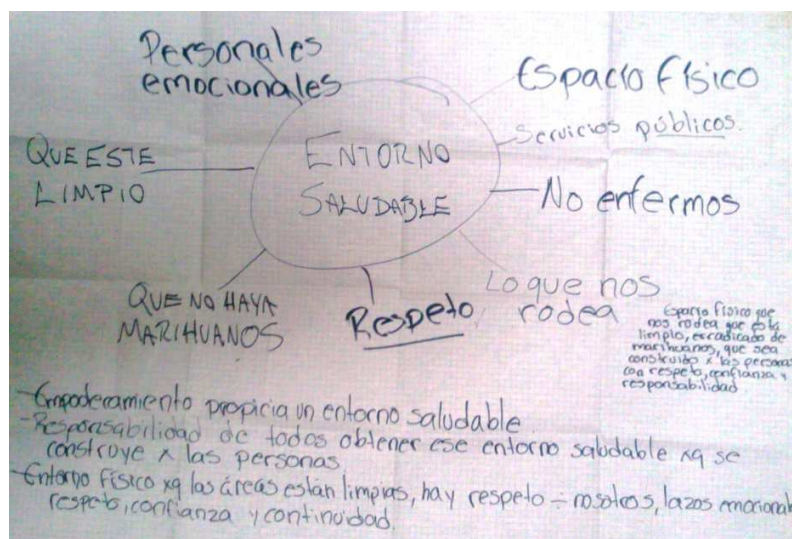 Personales
emocionales
Espacio Físico
Servicios públicos.
QUE ESTE
LIMPIO
ENTORNO
SALUDABLE
No enfermos
QUE NO HAYA
MARIHUANOS
Respeto
Lo que nos
rodea
Espacio físico que
nos rodea que está
limpio, erradicado de
marihuanos, que sea
construido x las personas
con respeto, confianza y
responsabilidad
-Empoderamiento propicia un entorno saludable.
-Responsabilidad de todos obtener ese entorno saludable xq se
construye x las personas.
-Entorno físico xq las áreas están limpias, hay respeto ÷ nosotros, lazos emocional
respeto, confianza y continuidad.